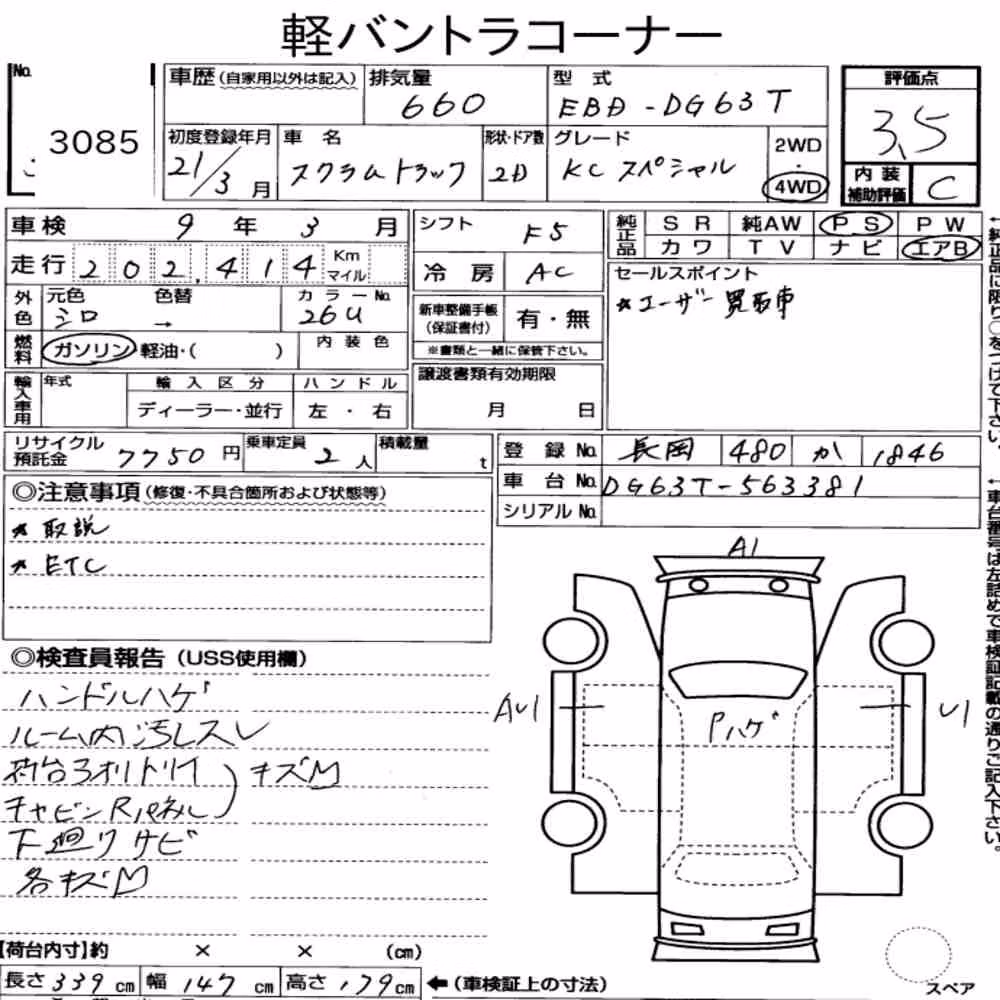 軽バントラコーナー
No.
3085
車歴(自家用以外は記入)
排気量
660
型式
EBD-DG63T
評価点
3.5
初度登録年月
21/3月
車名
スクラムトラック
形状・ドア数
2D
グレード
KCスペシャル
2WD
・
4WD
内装
補助評価
C
車検 9年 3月
シフト F5
純正品
SR 純AW PS PW
カワ TV ナビ エアB
走行 202,414 Km
マイル
冷房 AC
セールスポイント
★ユーザー買取車
外色
元色 シロ
色替 →
カラーNo. 26U
新車整備手帳
(保証書付)
有・無
※書類と一緒に保管下さい。
燃料
ガソリン・軽油・( )
内装色
輸入車用
年式
輸入区分
ディーラー・並行
ハンドル
左・右
譲渡書類有効期限
月 日
リサイクル
預託金 7750円
乗車定員 2人
積載量 t
登録No. 長岡 480 か 1846
車台No. DG63T-563381
シリアルNo.
◎注意事項(修復・不具合箇所および状態等)
★取説
★ETC
◎検査員報告(USS使用欄)
ハンドルハゲ
ルーム内汚レスレ
荷台3オリトリイ
チャビンRパネル
) キズM
下廻りサビ
各キズM
A1
AU1
Pハゲ
U1
【荷台内寸】約 × × (cm)
長さ339cm 幅147cm 高さ179cm
←(車検証上の寸法)
スペア
←純正品に限り○をつけて下さい。
←車台番号は左詰めで車検証記載の通りご記入下さい。